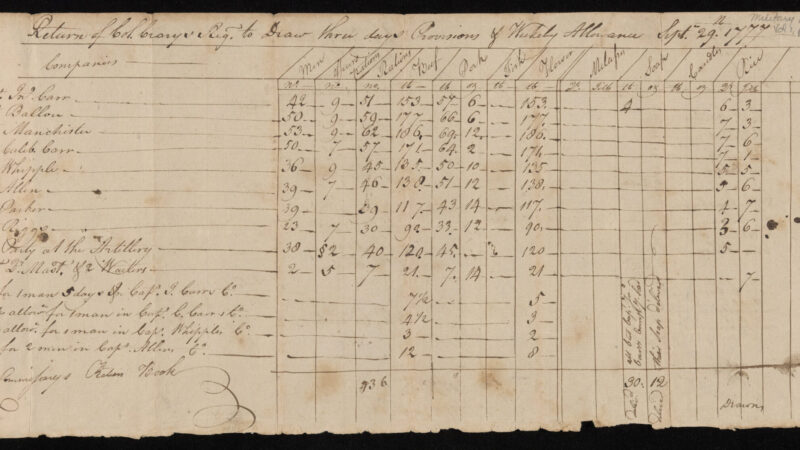 Return of Col. Crary's Regt. to Draw three days Provisions & Weekly Allowance Sept. 29. 1777
Military
Companies Men Rations Beef Pork Fish Flower Molases Soap Candles Rice
No. No. No. lb lb oz lb lb lb oz lb oz
Jno. Carr 42 9 51 153 57 6 153 4 6 3
Ballou 50 9 59 177 66 6 177 7 3
Manchester 53 9 62 186 69 12 186 7 6
Caleb Carr 50 7 57 171 64 2 171 7 1
Whipple 36 9 45 135 50 10 135 5 5
Allen 39 7 46 138 51 12 138 5 6
Parker 39 39 117 43 14 117 4 7
23 7 30 90 33 12 90 3 6
at the Artillery 38 2 40 120 45 120 5
Mast. & 2 Waiters 2 5 7 21 7 14 21 7
for 1 man 5 days of Capt. J. Carrs Co. 7½ 5
allow. for 1 man in Capt. C. Carrs Co. 4½ 3
allow. for 1 man in Capt. Whipples Co. 3 2
for 2 men in Capt. Allens Co. 12 8
Commissary's Ration Book
436
30 12
Drawn